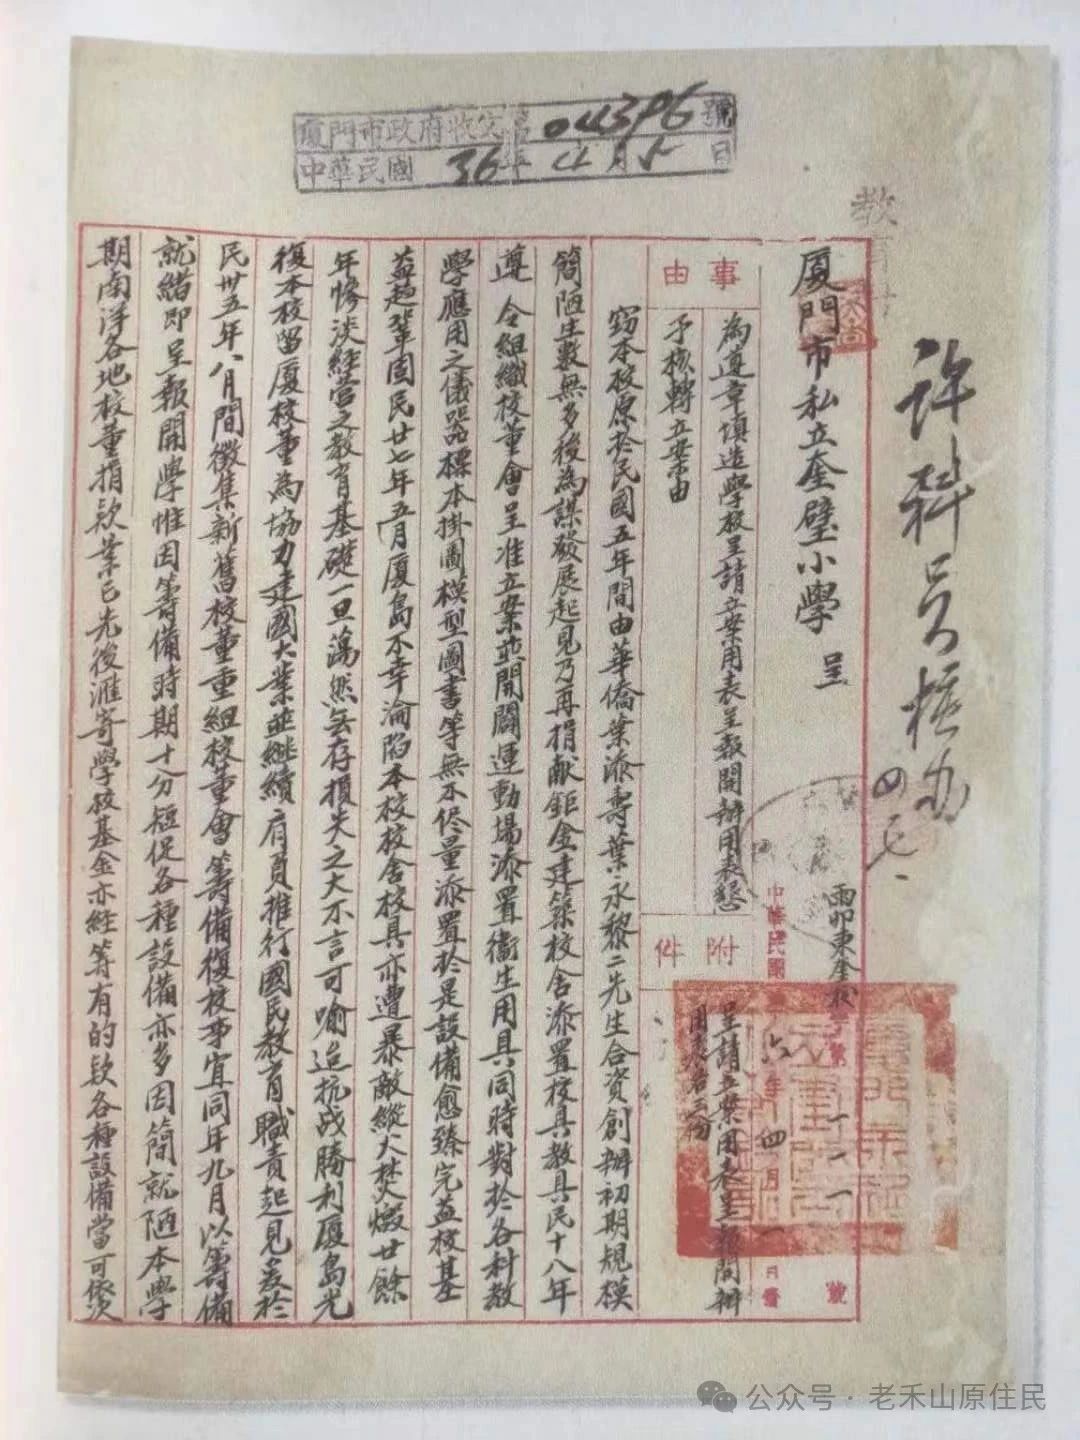 廈門市政府收文 第04396號
中華民國36年4月5日
教育
許科員核办
四七、
廈門市私立奎璧小學 呈
雨卯東奎
中華民國 六年四月一日發
號
事由
為遵章填造學校呈請立案用表呈報開辦用表懇
予核轉立案由
附件
呈請立案用表呈報開辦
用表各三份
竊本校原於民國五年間由華僑葉添壽葉永黎二先生合資創辦初期規模
簡陋生數無多後為謀發展起見乃再捐献鉅金建築校舍添置校具教具民十八年
遵 令組織校董會呈准立案並開闢運動場添置衛生用具同時對於各科教
學應用之儀器標本掛圖模型圖書等無不侭量添置於是設備愈臻完益校基
益趋鞏固民廿七年五月廈島不幸淪陷本校校舍校具亦遭暴敵縱火焚燬廿餘
年慘淡經营之教育基礎一旦蕩然無存損失之大不言可喻迨抗战勝利廈島光
復本校留廈校董為協力建國大業並継續肩負推行國民教育職責起見爰於
民卅五年八月間徵集新舊校董重組校董會籌備復校事宜同年九月以籌備
就緒即呈報開學惟因籌備時期十分短促各種設備亦多因簡就陋本學
期南洋各地校董捐欵業已先後滙寄學校基金亦经筹有的欵各種設備當可依次
公众号·老禾山原住民